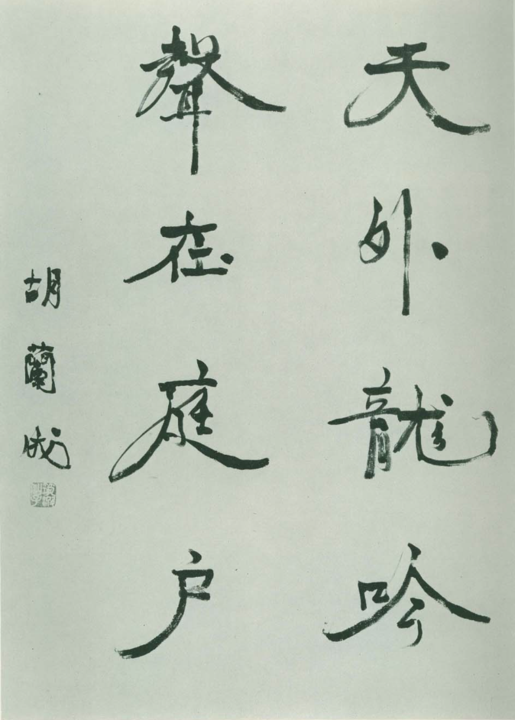 天外龍吟
聲在庭户
胡蘭成